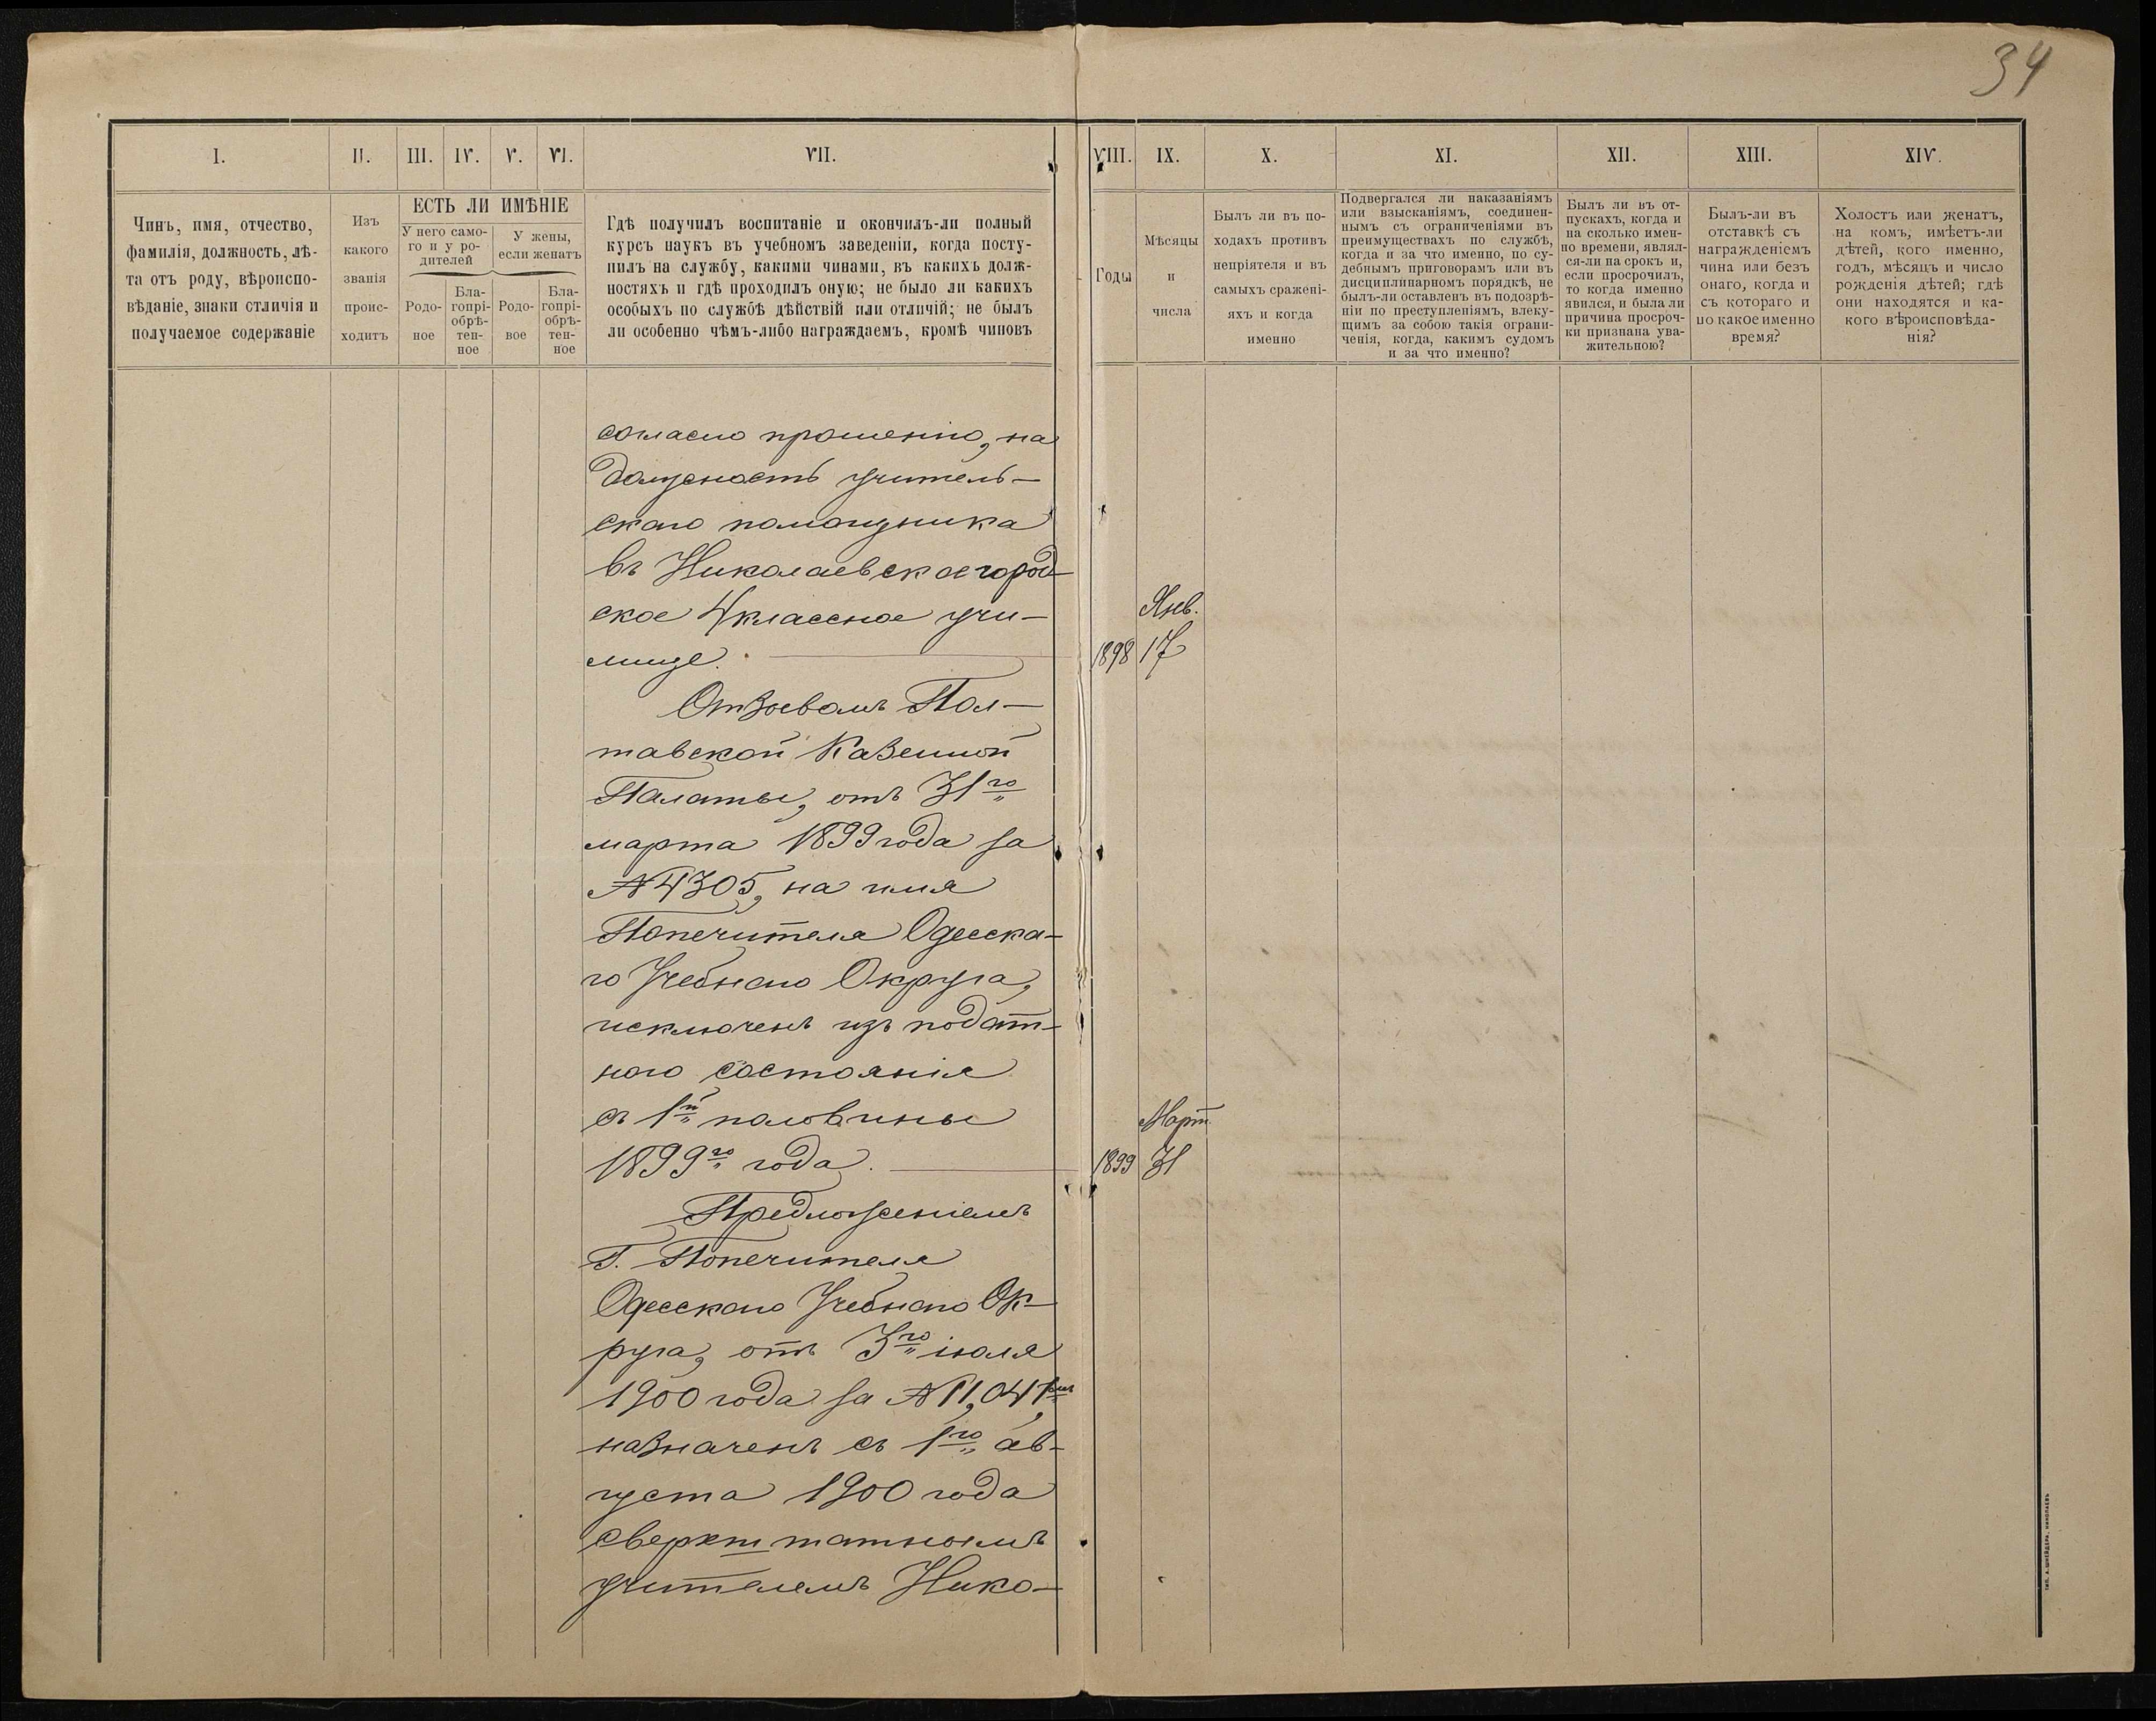 34
I.
II.
III.
IV.
V.
VI.
VII.
VIII.
IX.
X.
XI.
XII.
XIII.
XIV.
Чинъ, имя, отчество,
фамилія, должность, лѣ-
та отъ роду, вѣроиспо-
вѣданіе, знаки отличія и
получаемое содержаніе
Изъ
какого
званія
проис-
ходитъ
ЕСТЬ ЛИ ИМѢНІЕ
У него само-
го и у ро-
дителей
У жены,
если женатъ
Родо-
ное
Бла-
гопрі-
обрѣ-
тен-
ное
Родо-
вое
Бла-
гопрі-
обрѣ-
тен-
ное
Гдѣ получилъ воспитаніе и окончилъ-ли полный
курсъ наукъ въ учебномъ заведеніи, когда посту-
пилъ на службу, какими чинами, въ какихъ долж-
ностяхъ и гдѣ проходилъ оную; не было ли какихъ
особыхъ по службѣ дѣйствій или отличій; не былъ
ли особенно чѣмъ-либо награждаемъ, кромѣ чиновъ
Годы
Мѣсяцы
и
числа
Былъ ли въ по-
ходахъ противъ
непріятеля и въ
самыхъ сражені-
яхъ и когда
именно
Подвергался ли наказаніямъ
или взысканіямъ, соединен-
нымъ съ ограниченіями въ
преимуществахъ по службѣ,
когда и за что именно, по су-
дебнымъ приговорамъ или въ
дисциплинарномъ порядкѣ, не
былъ-ли оставленъ въ подозрѣ-
ніи по преступленіямъ, влеку-
щимъ за собою такія ограни-
ченія, когда, какимъ судомъ
и за что именно?
Былъ ли въ от-
пускахъ, когда и
на сколько имен-
но времени, являл-
ся-ли на срокъ и,
если просрочилъ,
то когда именно
явился, и была ли
причина просроч-
ки признана ува-
жительною?
Былъ-ли въ
отставкѣ съ
награжденіемъ
чина или безъ
онаго, когда и
съ котораго и
по какое именно
время?
Холостъ или женатъ,
на комъ, имѣетъ-ли
дѣтей, кого именно,
годъ, мѣсяцъ и число
рожденія дѣтей; гдѣ
они находятся и ка-
кого вѣроисповѣда-
нія?
согласно прошенію, на
должность учитель-
скаго помощника
въ Николаевское город-
ское 4 классное учи-
лище.
Янв.
1898 17
Отзывомъ Пол-
тавской Казенной
Палаты, отъ 31го
марта 1899 года за
№ 4305, на имя
Попечителя Одесска-
го Учебнаго Округа,
исключенъ изъ подат-
ного состоянія
съ 1й половины
1899го года.
Март.
1899 31
Предложеніемъ
Г. Попечителя
Одесскаго Учебнаго Ок-
руга, отъ 3го іюля
1900 года за № 11,041мъ,
назначенъ съ 1го ав-
густа 1900 года
сверхштатнымъ
учителемъ Нико-
ТИП. А. ШНЕЙДЕРА, НИКОЛАЕВЪ